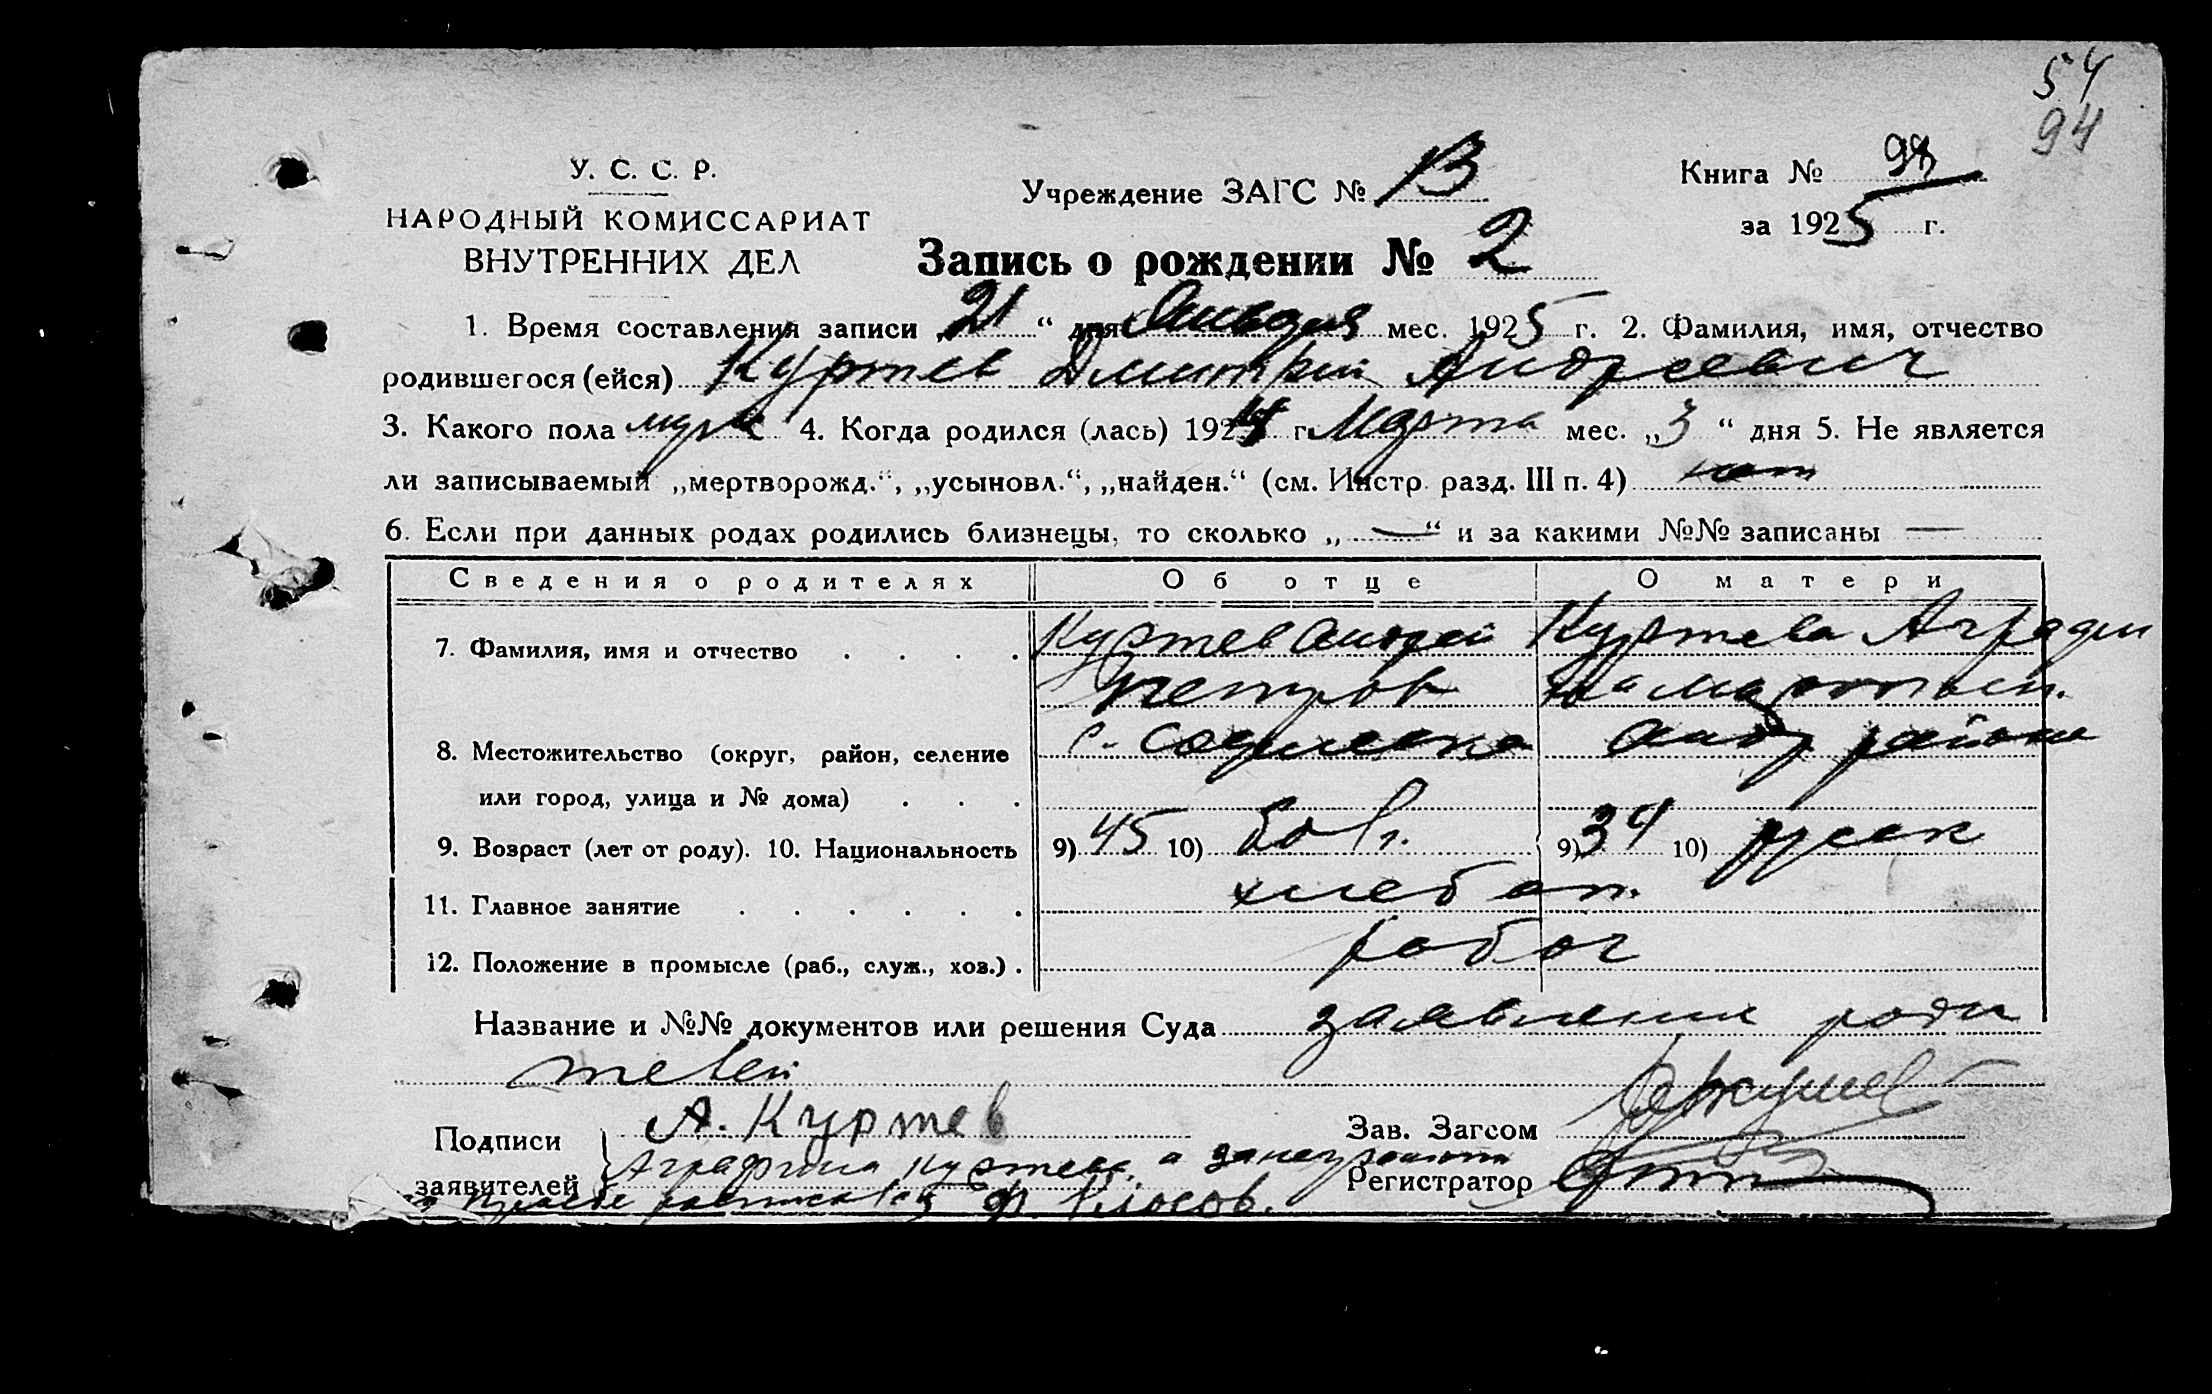 54
94
У. С. С. Р.
НАРОДНЫЙ КОМИССАРИАТ
ВНУТРЕННИХ ДЕЛ
Учреждение ЗАГС №
Книга №
за 1925 г.
Запись о рождении № 2
1. Время составления записи „21“ дня мес. 1925 г. 2. Фамилия, имя, отчество
родившегося (ейся) Куртев Дмитрий Андреевич
3. Какого пола муж 4. Когда родился (лась) 1924 г. Марта мес. „3“ дня 5. Не является
ли записываемый „мертворожд.“, „усыновл.“, „найден.“ (см. Инстр. разд. III п. 4) нет
6. Если при данных родах родились близнецы, то сколько „—“ и за какими №№ записаны —
Сведения о родителях Об отце О матери
7. Фамилия, имя и отчество Куртев Андрей Куртева
Петров
8. Местожительство (округ, район, селение с. Софиевка Андр района
или город, улица и № дома)
9. Возраст (лет от роду). 10. Национальность 9) 45 10) болг. 9) 34 10) русск
11. Главное занятие хлебоп.
12. Положение в промысле (раб., служ., хоз.) рабоч
Название и №№ документов или решения Суда заявления роди
телей
Подписи А. Куртев Зав. Загсом
Аграфина Куртева а
заявителей Ф. Клосов. Регистратор